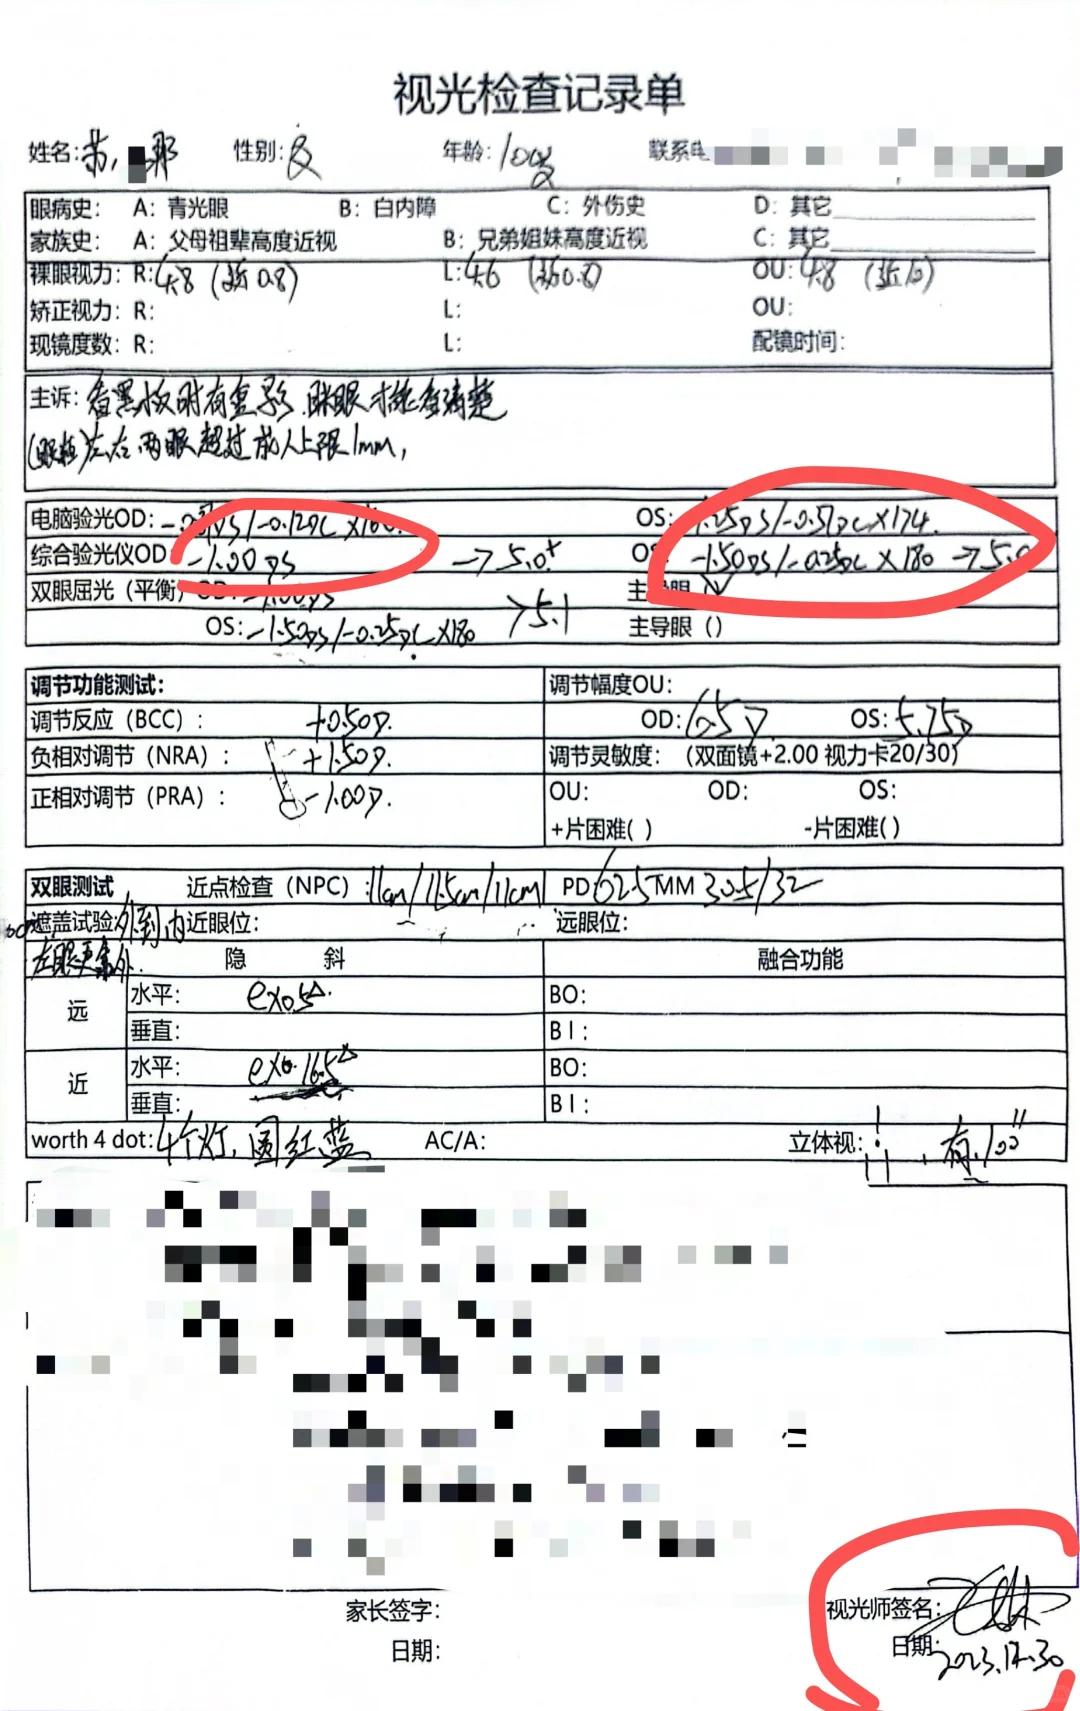 视光检查记录单
姓名: 苏 那 性别: 女 年龄: 10岁 联系电
眼病史: A: 青光眼 B: 白内障 C: 外伤史 D: 其它
家族史: A: 父母祖辈高度近视 B: 兄弟姐妹高度近视 C: 其它
裸眼视力: R: 4.8 (近0.8) L: 4.6 (近0.8) OU: 4.8 (近1.0)
矫正视力: R: L: OU:
现镜度数: R: L: 配镜时间:
主诉: 看黑板时有重影, 眯眼才能看清楚
(眼轴)左右两眼超过前人上限1mm,
电脑验光OD: /-0.12DC×180 OS: 1.25DS/-0.57DC×174
综合验光仪OD -1.00DS →5.0⁺ O -1.50DS/-0.25DC×180 →5.0
双眼屈光 (平衡) OD: -1.00DS 主导眼
OS: -1.50DS/-0.25DC×180 >5.1 主导眼 ()
调节功能测试: 调节幅度OU:
调节反应 (BCC) : +0.50D. OD: 6.5D OS: 5.75D
负相对调节 (NRA) : +1.50D. 调节灵敏度: (双面镜+2.00 视力卡20/30)
正相对调节 (PRA) : -1.00D. OU: OD: OS:
+片困难( ) -片困难( )
双眼测试 近点检查 (NPC) : 11cm/11.5cm/11cm PD: 62.5 MM 30.5/32
遮盖试验: 外到内 近眼位: 远眼位:
左眼更靠外.
隐 斜 融合功能
远 水平: exo5△. BO:
垂直: BI:
近 水平: exo 16.5△ BO:
垂直: BI:
worth 4 dot: 4个灯, 圆红蓝 AC/A: 立体视: , 有, 100"
家长签字: 视光师签名:
日期: 日期: 2023.12.30